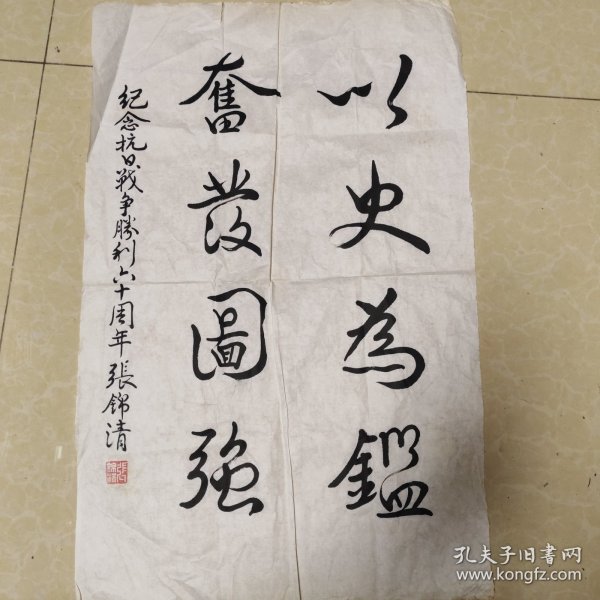 以史為鑑
奮發圖強
紀念抗日戰爭勝利六十周年 張錦清
孔夫子旧书网
www.kongfz.com